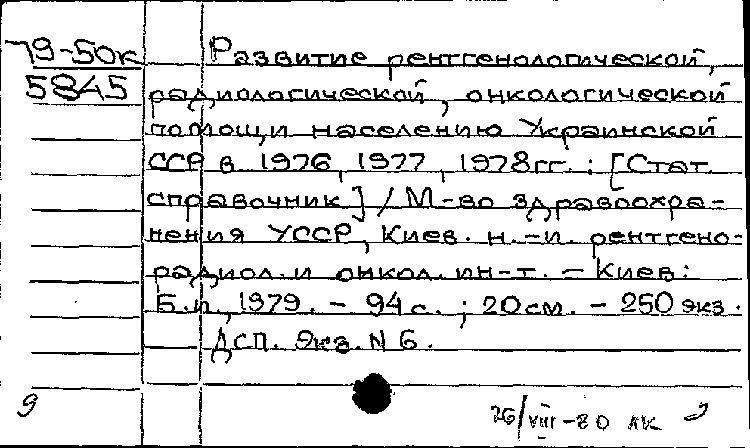 79-50к
5845
Развитие рентгенологической,
радиологической, онкологической
помощи населению Украинской
ССР в 1976, 1977, 1978гг. : [Стат.
справочник] / М-во здравоохра-
нения УССР, Киев. н.-и. рентгено-
радиол. и онкол. ин-т. – Киев:
Б.и., 1979. – 94 с. ; 20см. – 250 экз.
ДСП. Экз. N 6.
9
26/VIII-80 АК